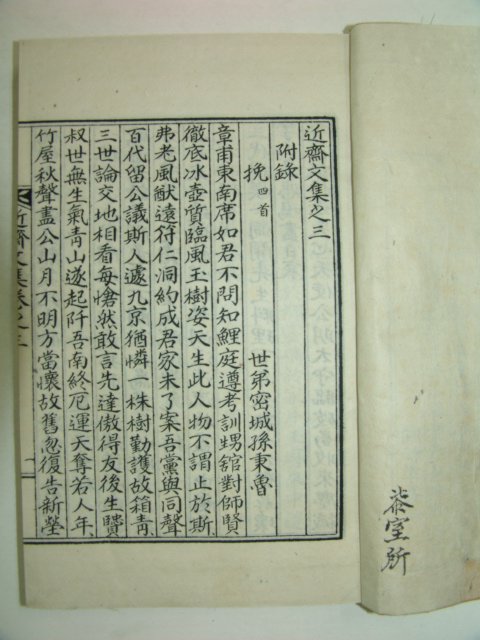 近齋文集之三
附錄
挽四首
世弟密城孫秉魯
章甫東南席如君不問知鯉庭遵考訓甥舘對師賢
徹底氷壺質臨風玉樹姿天生此人物不謂止於斯
弗老風猷遠符仁洞約成君家未了案吾黨與同聲
百代留公議斯人遽九京猶憐一株樹勤護故箱靑
三世論交地相看每愴然敢言先達傲得友後生賢
叔世無生氣靑山遂起阡吾南終厄運天奪若人年
竹屋秋聲盡公山月不明方當懷故舊忽復告新塋
近齋文集卷之三
柰室所